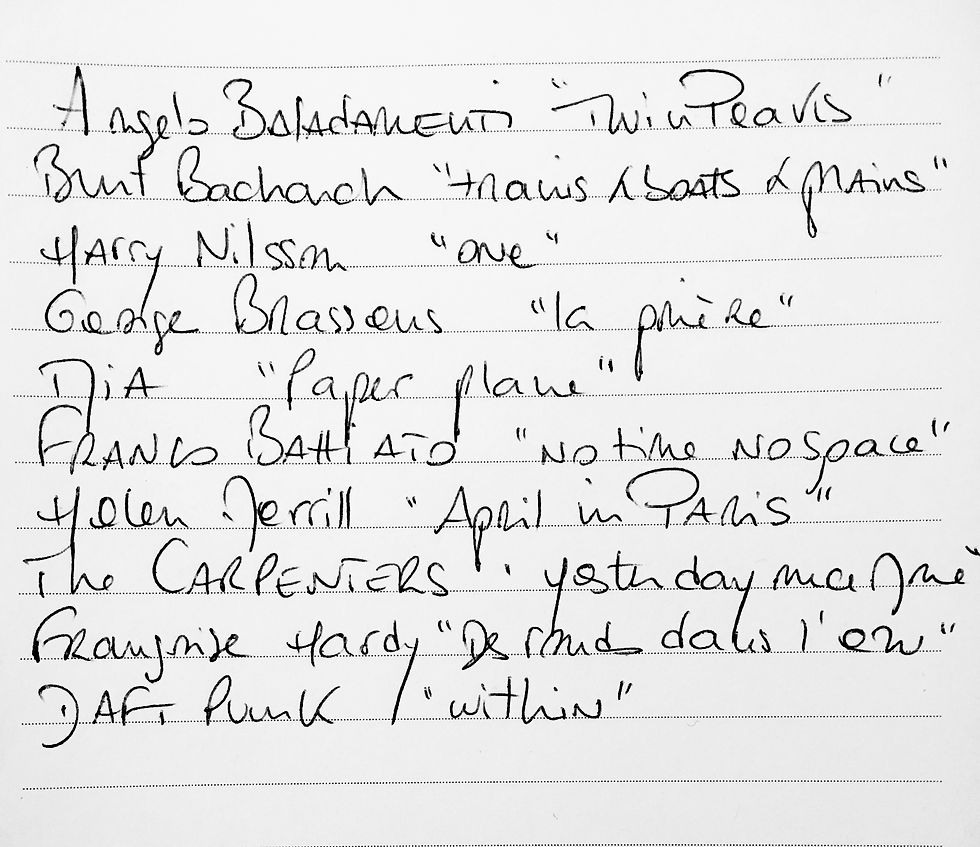 Angelo BADALAMENTI "Twin Peaks"
Burt Bacharach "trains & boats & plains"
HARRY Nilsson "one"
George Brassens "la prière"
MIA "Paper plane"
FRANCO BATTIATO "NO time NO Space"
Helen Merrill "April in PARis"
The CARPENTERS "yesterday once more"
Françoise Hardy "Des ronds dans l'eau"
DAFT PUNK "within"